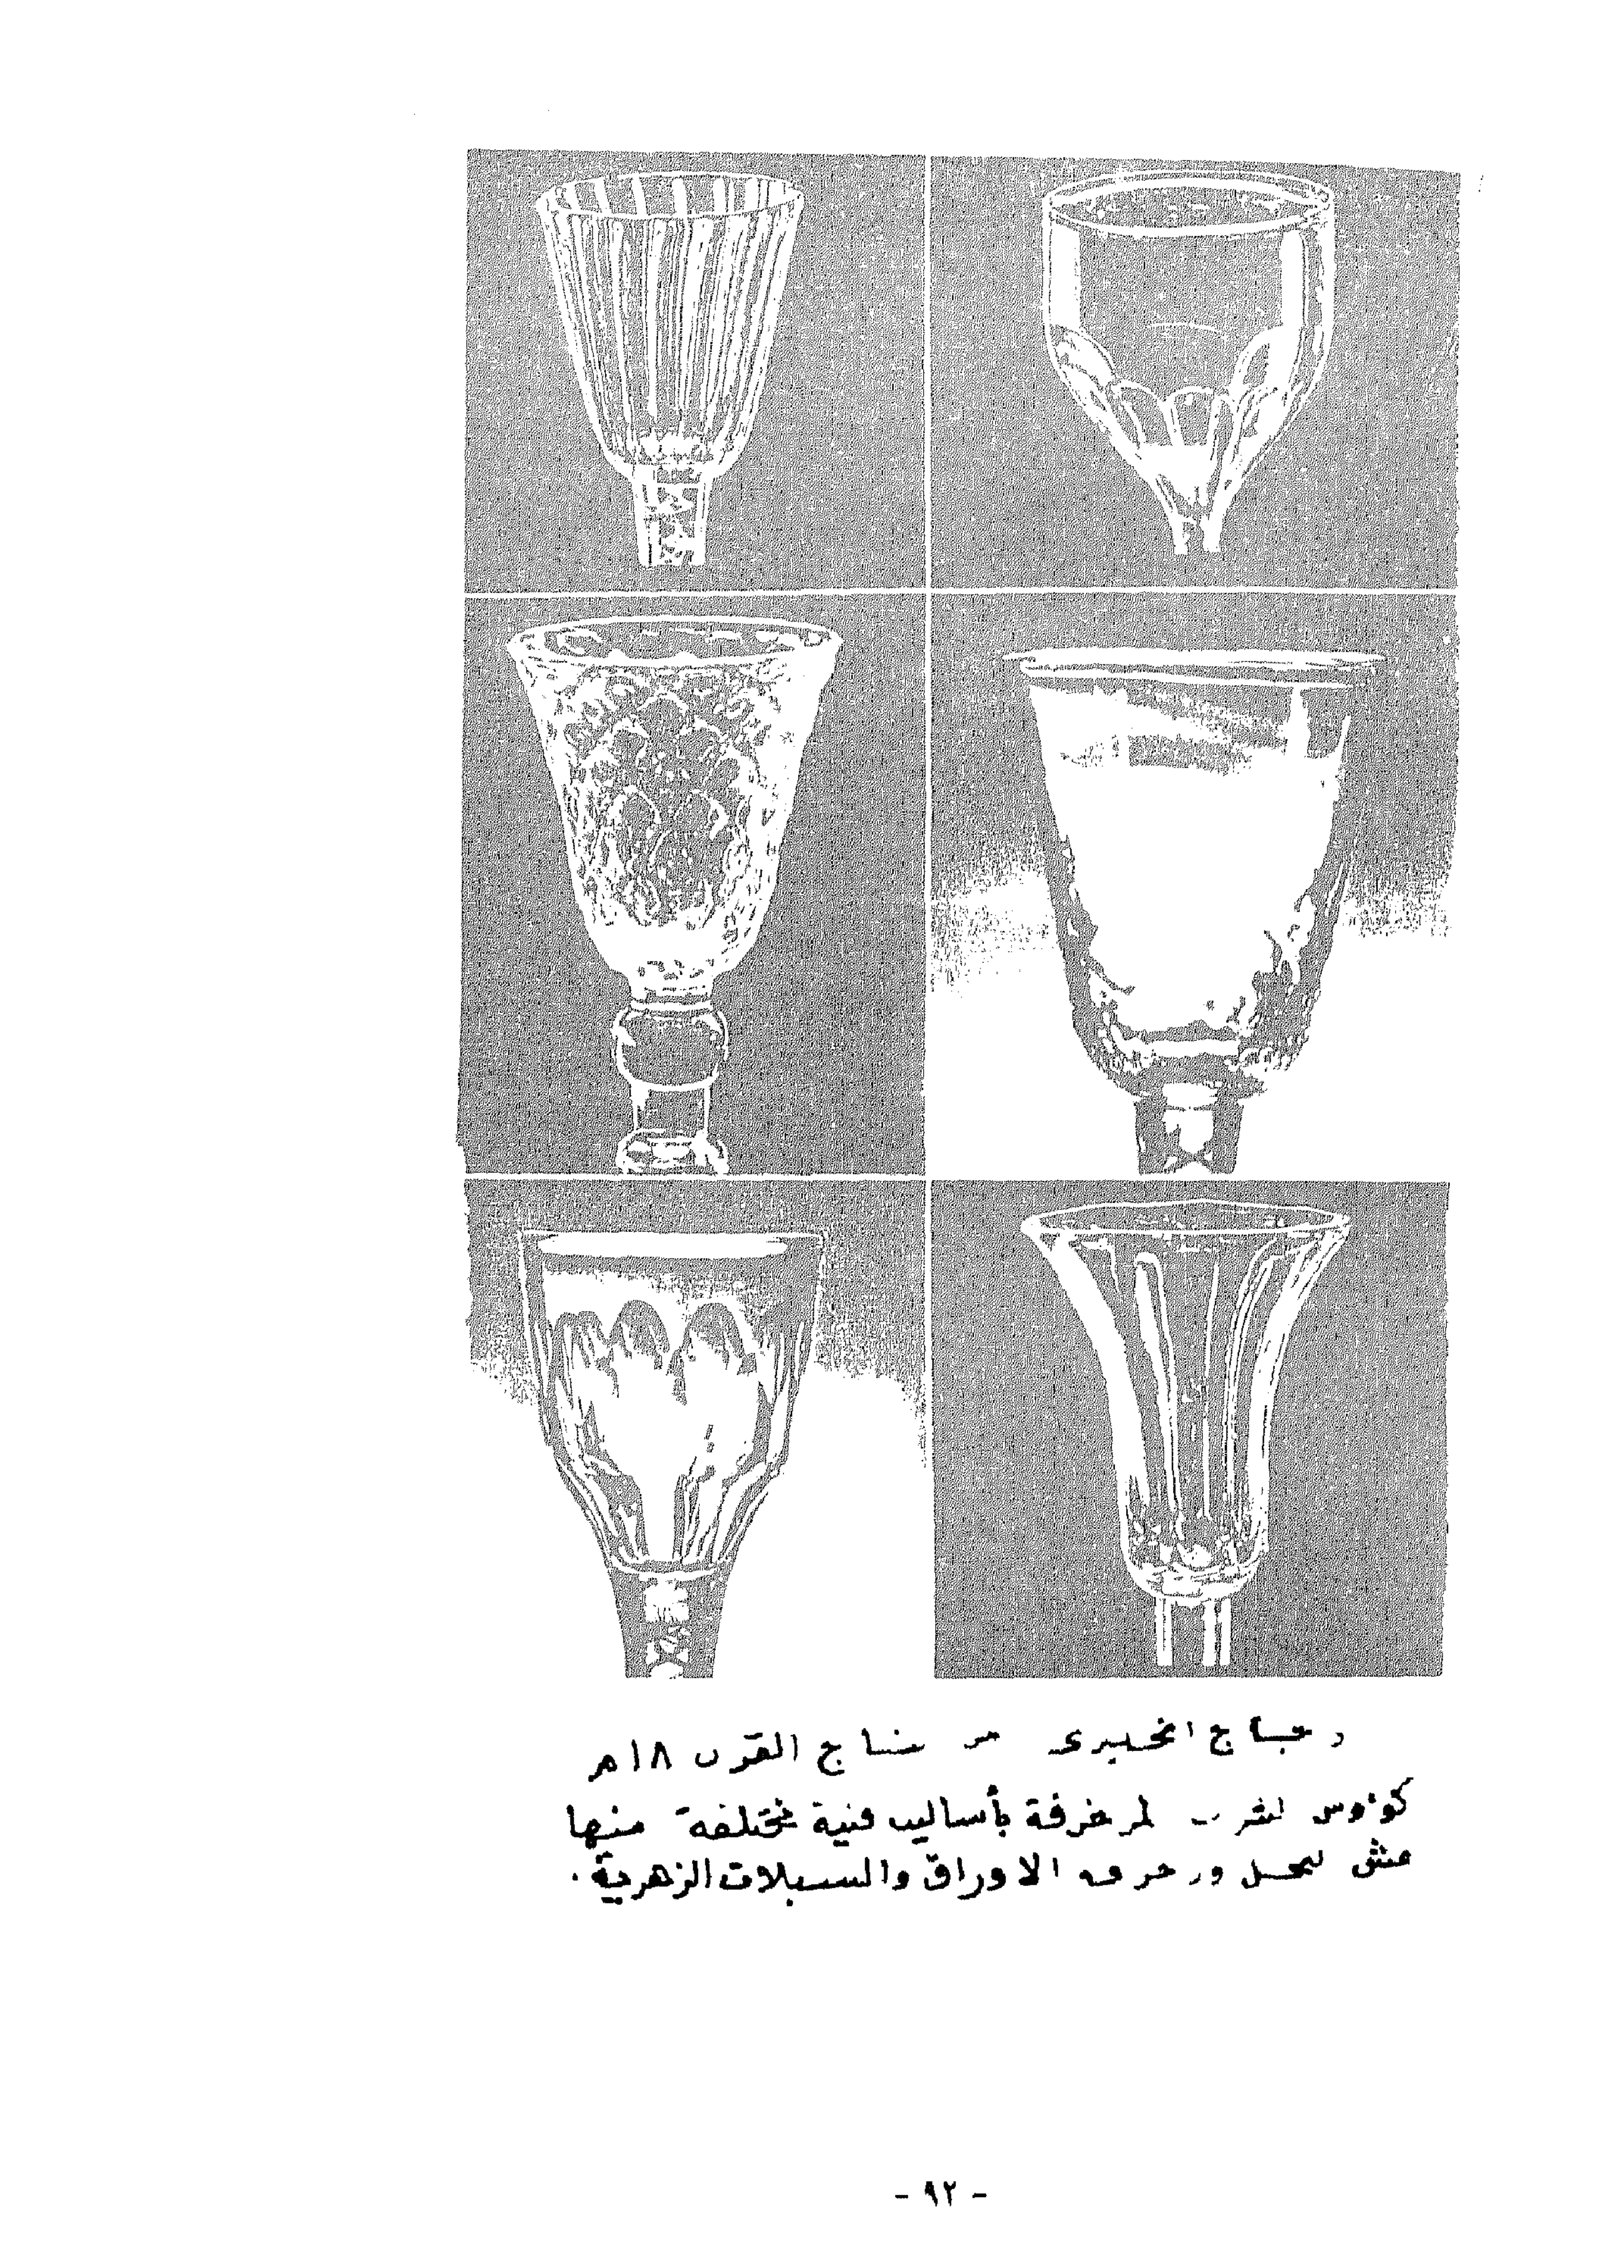 زجاج انجليزى من نتاج القرن ١٨م
كؤوس للشرب المزخرفة بأساليب فنية مختلفة منها
عش النحل وزخرفه الاوراق والسبلات الزهرية.
- ٩٢ -